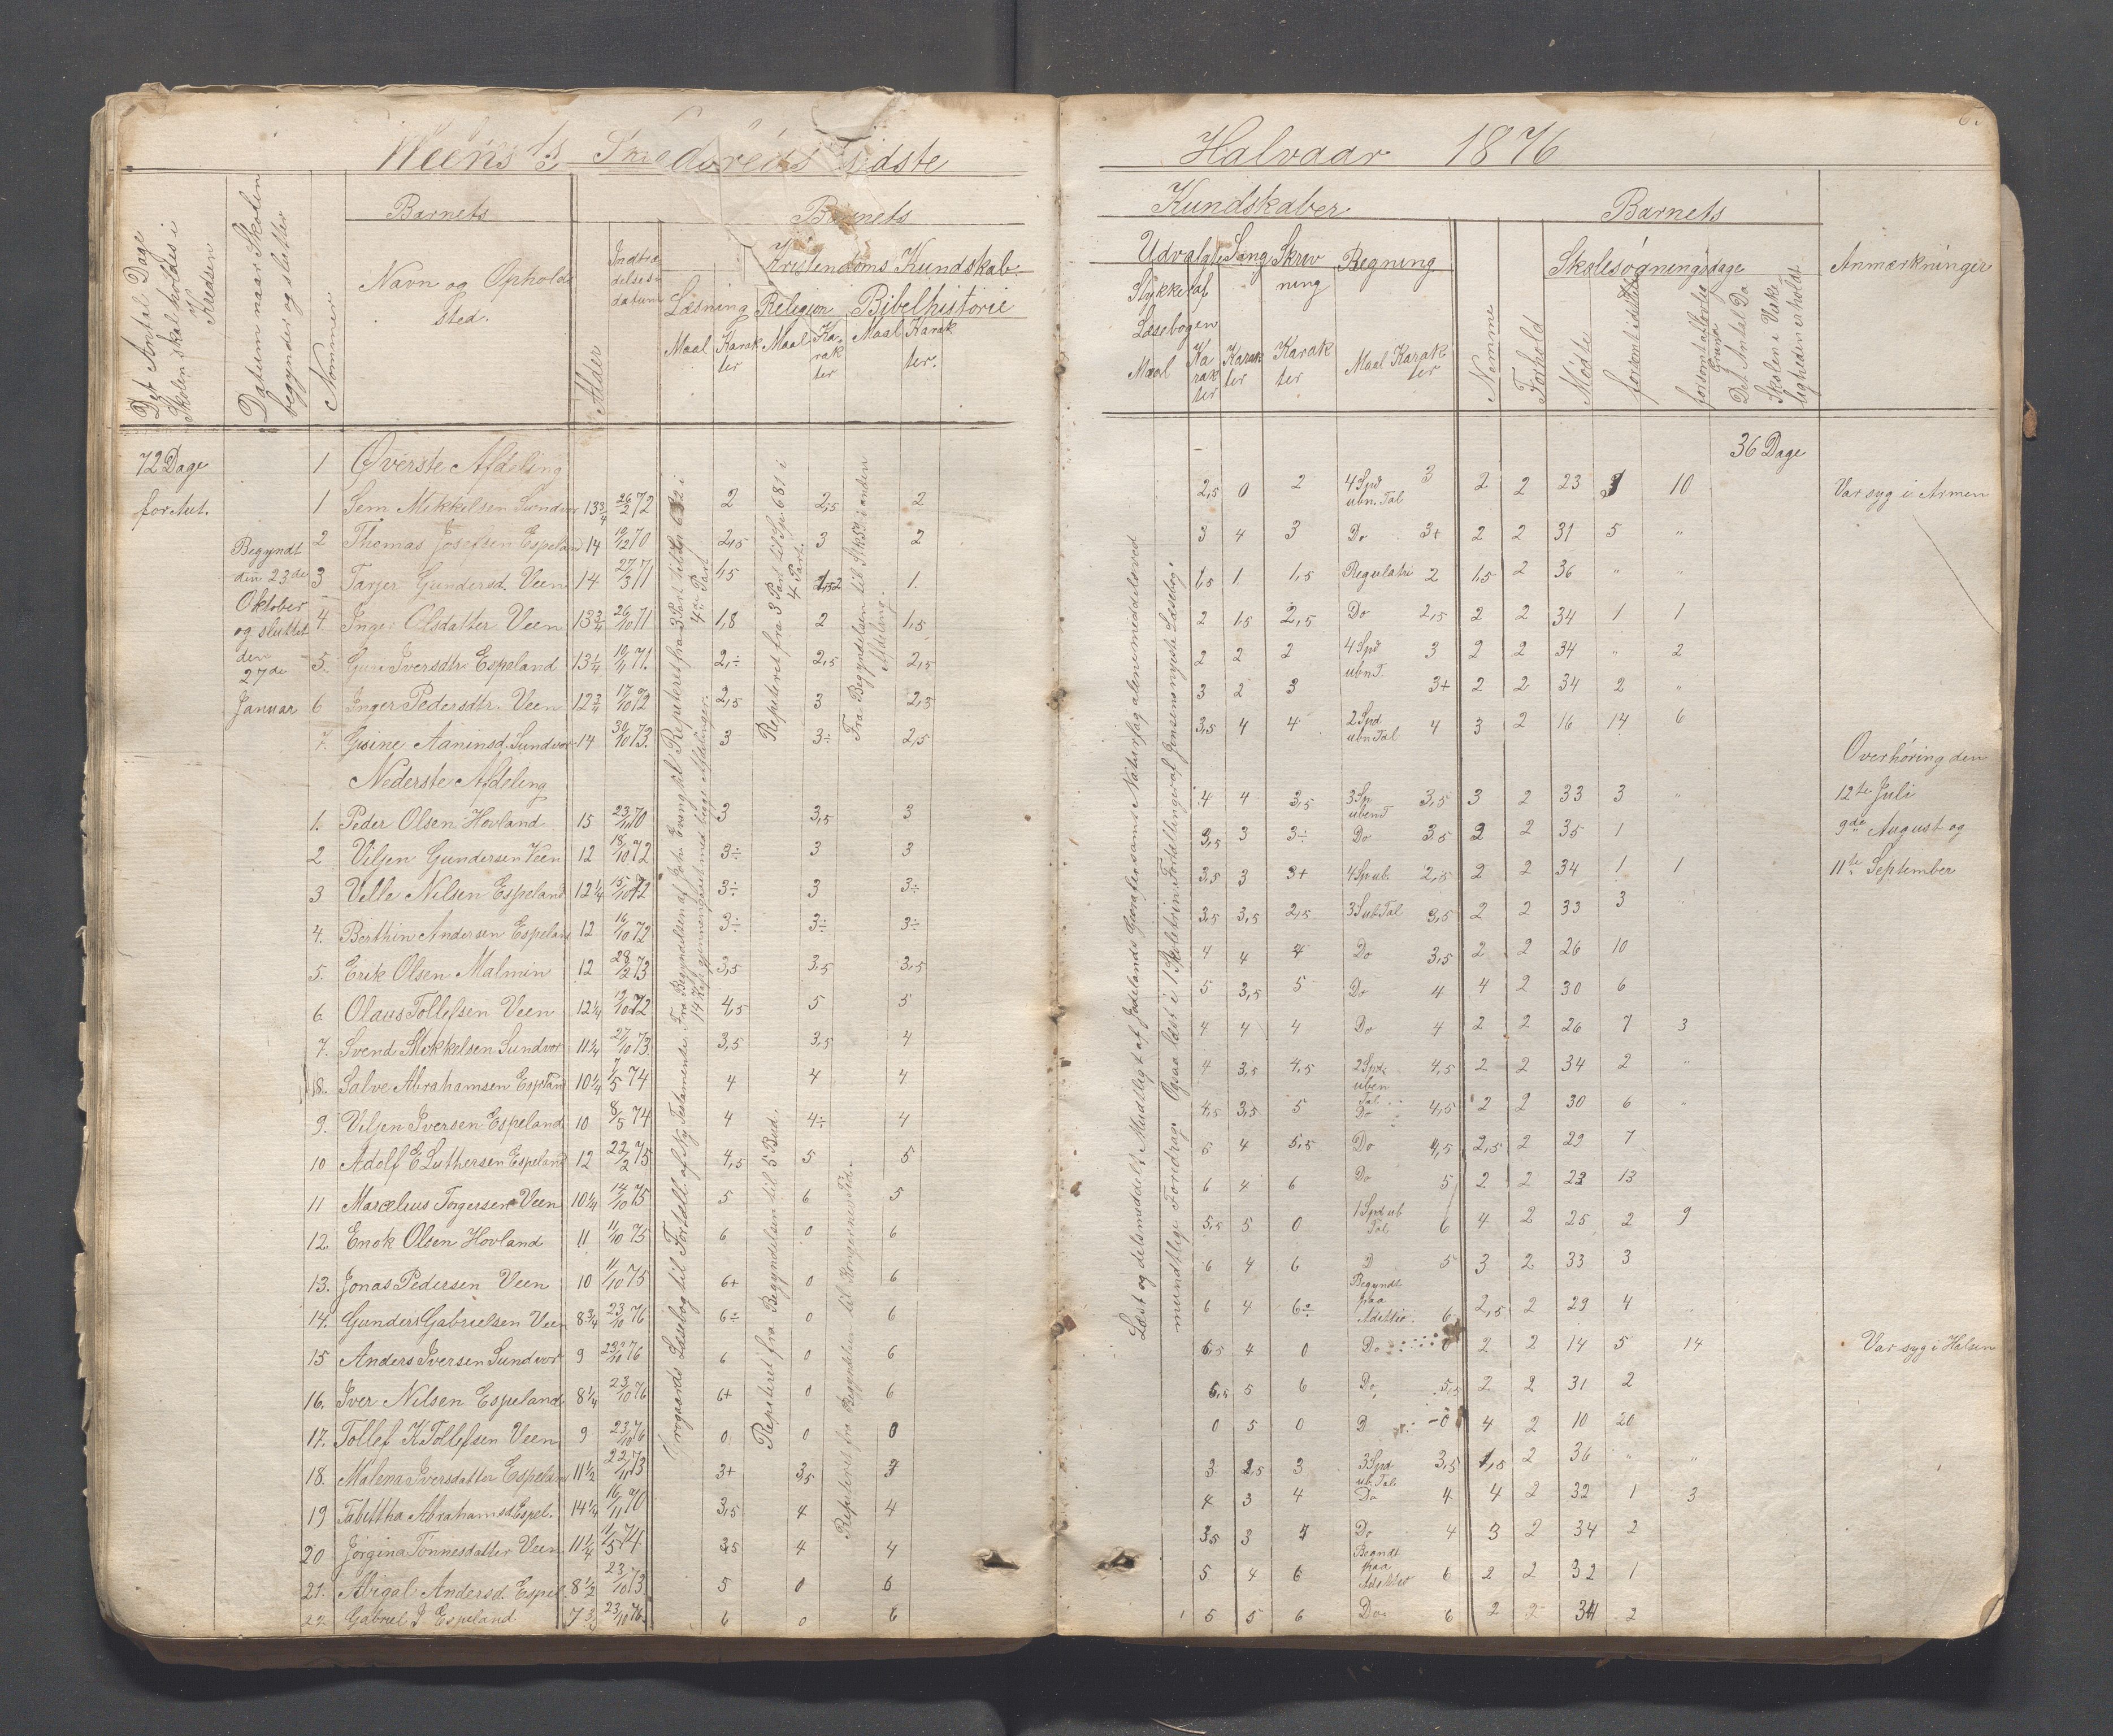 Halvaar 1876
Barnets
Barnets
Kundskaber
Barnets
Det Antal Dage
Skolen skal holdes i
Kredsen
Datum naar Skolen
begynder og slutter
Nommer
Navn og Opholds
Sted.
Alder
Indtræ
delses-
datum
Kristendoms Kundskab.
Læsning Religion Bibelhistorie
Maal Karak
ter
Maal Ka-
rak
ter
Maal Karak
ter.
Udvalgte Sang Skriv Regning
ning
Stykker af
Læsebogen
Maal Ka
rak
ter
Karak
ter
Karak
ter
Maal Karak
ter
Nemme
Forhold
Skolesøgningsdage
Mødte
forsømt
forsømt af lovlig
Grund
Det Antal Da
Skolen i Virke
ligheden er holdt
Anmærkninger
72 Dage
for Aut.
Begyndt
den 23de
Oktober
og sluttet
den
27de
Januar
1 Øverste Afdeling 36 Dage
1 Sem Mikkelsen Sundvor 13 3/4 26/2 72 2 2,5 2 2,5 0 2 4 Spd ubn. Tal 3 2 2 23 3 10 Var syg i Armen
2 Thomas Josefsen Espeland 14 19/12 70 2,5 3 2 3 4 3 Do 3+ 2 2 31 5 "
3 Tarjer Gundersd. Veen 14 27/3 71 1,5 2 1. 1,5 1 1,5 Regulatri 2 1,5 2 36 " "
4. Inger Olsdatter Veen 13 3/4 26/10 71 1,8 2 1,5 2 1,5 2,5 Do 2,5 2 2 34 1 1
5. Guri Iversdtr. Espeland 13 1/4 19/11 71. 2,÷ 2,5 2,5 2 2 2 4 Spd ubn T. 3 2 2 34 " 2
6 Inger Pedersdtr. Veen 12 3/4 17/10 72 2,5 3 2,5 3 2 3 3+ 2 2 34 2 "
7. Gusine Aaninsd. Sundvor 14 30/10 73. 3 3÷ 2,5 3,5 4 4 2 Spd ubn Tal 4 3 2 16 14 6
Nederste Afdeling
Overhøring den
12te Juli
9de August og
11te September
1. Peder Olsen Hovland 15 23/10 70 3 3,5 3 4 4 3,5 3 Sp. uben T 3,5 3 2 33 3 "
2 Viljen Gundersen Veen 12 18/10 72 3÷ 3 3 3,5 3 3÷ Do 3,5 2 2 35 1
3 Velle Nilsen Espeland 12 1/4 15/10 72 3÷ 3 3÷ 3,5 3 3+ 4 Sp ub. 2,5 2 2 34 1 1
4. Berthin Andersen Espeland 12 16/10 72 3÷ 3÷ 3÷ 3,5 3,5 2,5 3 S ub Tal 3,5 2 2 33 3 "
5. Erik Olsen Malmin 12 28/2 73 3,5 3,5 3,5 4 4 4 Do 3,5 2 2 26 10
6 Olaus Tollefsen Veen 12 1/4 19/10 72 4,5 5 5 5 3,5 5 Do 4 4 2 30 6
7. Svend Mikkelsen Sundvor 11 1/4 27/10 73. 3,5 3,5 4 4 4 4 Do 4 2 2 26 7 3
8. Salve Abrahamsen Espeland 10 1/4 7/5 74 4 4 4 4 3,5 4,5 2 Spd. uben Tal 4,5 2 2 34 2 "
9. Viljen Iversen Espeland 10 8/5 74 4 4÷ 4 4,5 3,5 5 Do 4,5 2 2 30 6 "
10 Adolf E Luthersen Espeland 12 22/2 75 4,5 5 5 5 4 5,5 Do 4,5 2,5 2 29 7
11 Marcelius Torgersen Veen 10 1/4 14/10 75 5 6 5 6 4 6 Do 5 2 2 23 13
12. Enok Olsen Hovland 11 11/10 75 6 0 6 5,5 5 0 1 Spd ub Tal 6 4 2 25 2 9
13. Jonas Pedersen Veen 10 11/10 75 6+ 0 6 6 4 6 D 5 3 2 33 3
14. Gunders Gabrielsen Veen 8 3/4 23/10 76 6÷ 0 6 6 4 6÷ Begyndt paa Adittio. 6 2,5 2 29 4 "
15 Anders Iversen Sundvor 9 23/10 76 6 0 6 6,5 4 0 Do 0 2 2 14 5 14 Var syg i Halsen
16. Iver Nilsen Espeland 8 1/4 23/10 76 6+ 0 6 5,5 5 6 Do. 5,5 2 2 31 2
17. Tollef K Tollefsen Veen 9 23/10 76 0 0 0 0 5 0 D 0 4 2 10 26
18. Malena Iversdatter Espeland 11 1/2 22/11 73 3+ 3,5 3 3 2,5 3 3 Spd ub. Tal 3,5 1,5 2 36 " "
19 Tabittha Abrahamsd Espel. 14 1/4 16/11 70 3,5 4 4 4 3 4 Do 4 4 2 32 1 3
20 Jørgina Tønnesdatter Veen 11 1/4 11/5 74 3,5 4 4 3,5 3 4 Do 4 3 2 34 2
21. Abigal Andersd. Espel. 8 1/2 23/10 73 5 0 6 5 4 6 Begyndt paa Adittio 6 2 2 32 1
22 Gabriel J Espeland. 7 3/4 23/10 76. 6 0 6 5 5 6 Do. 6 2 2 34 2
Repeteret fra 3 Part til Sp. 681 i
4 Part.
Fra Begyndelsen til Stk 59 i anden
Afdeling.
Repeteret fra Begyndelsen til 5 Bud.
Repeteret fra Begyndelsen til Kongernes Tid.